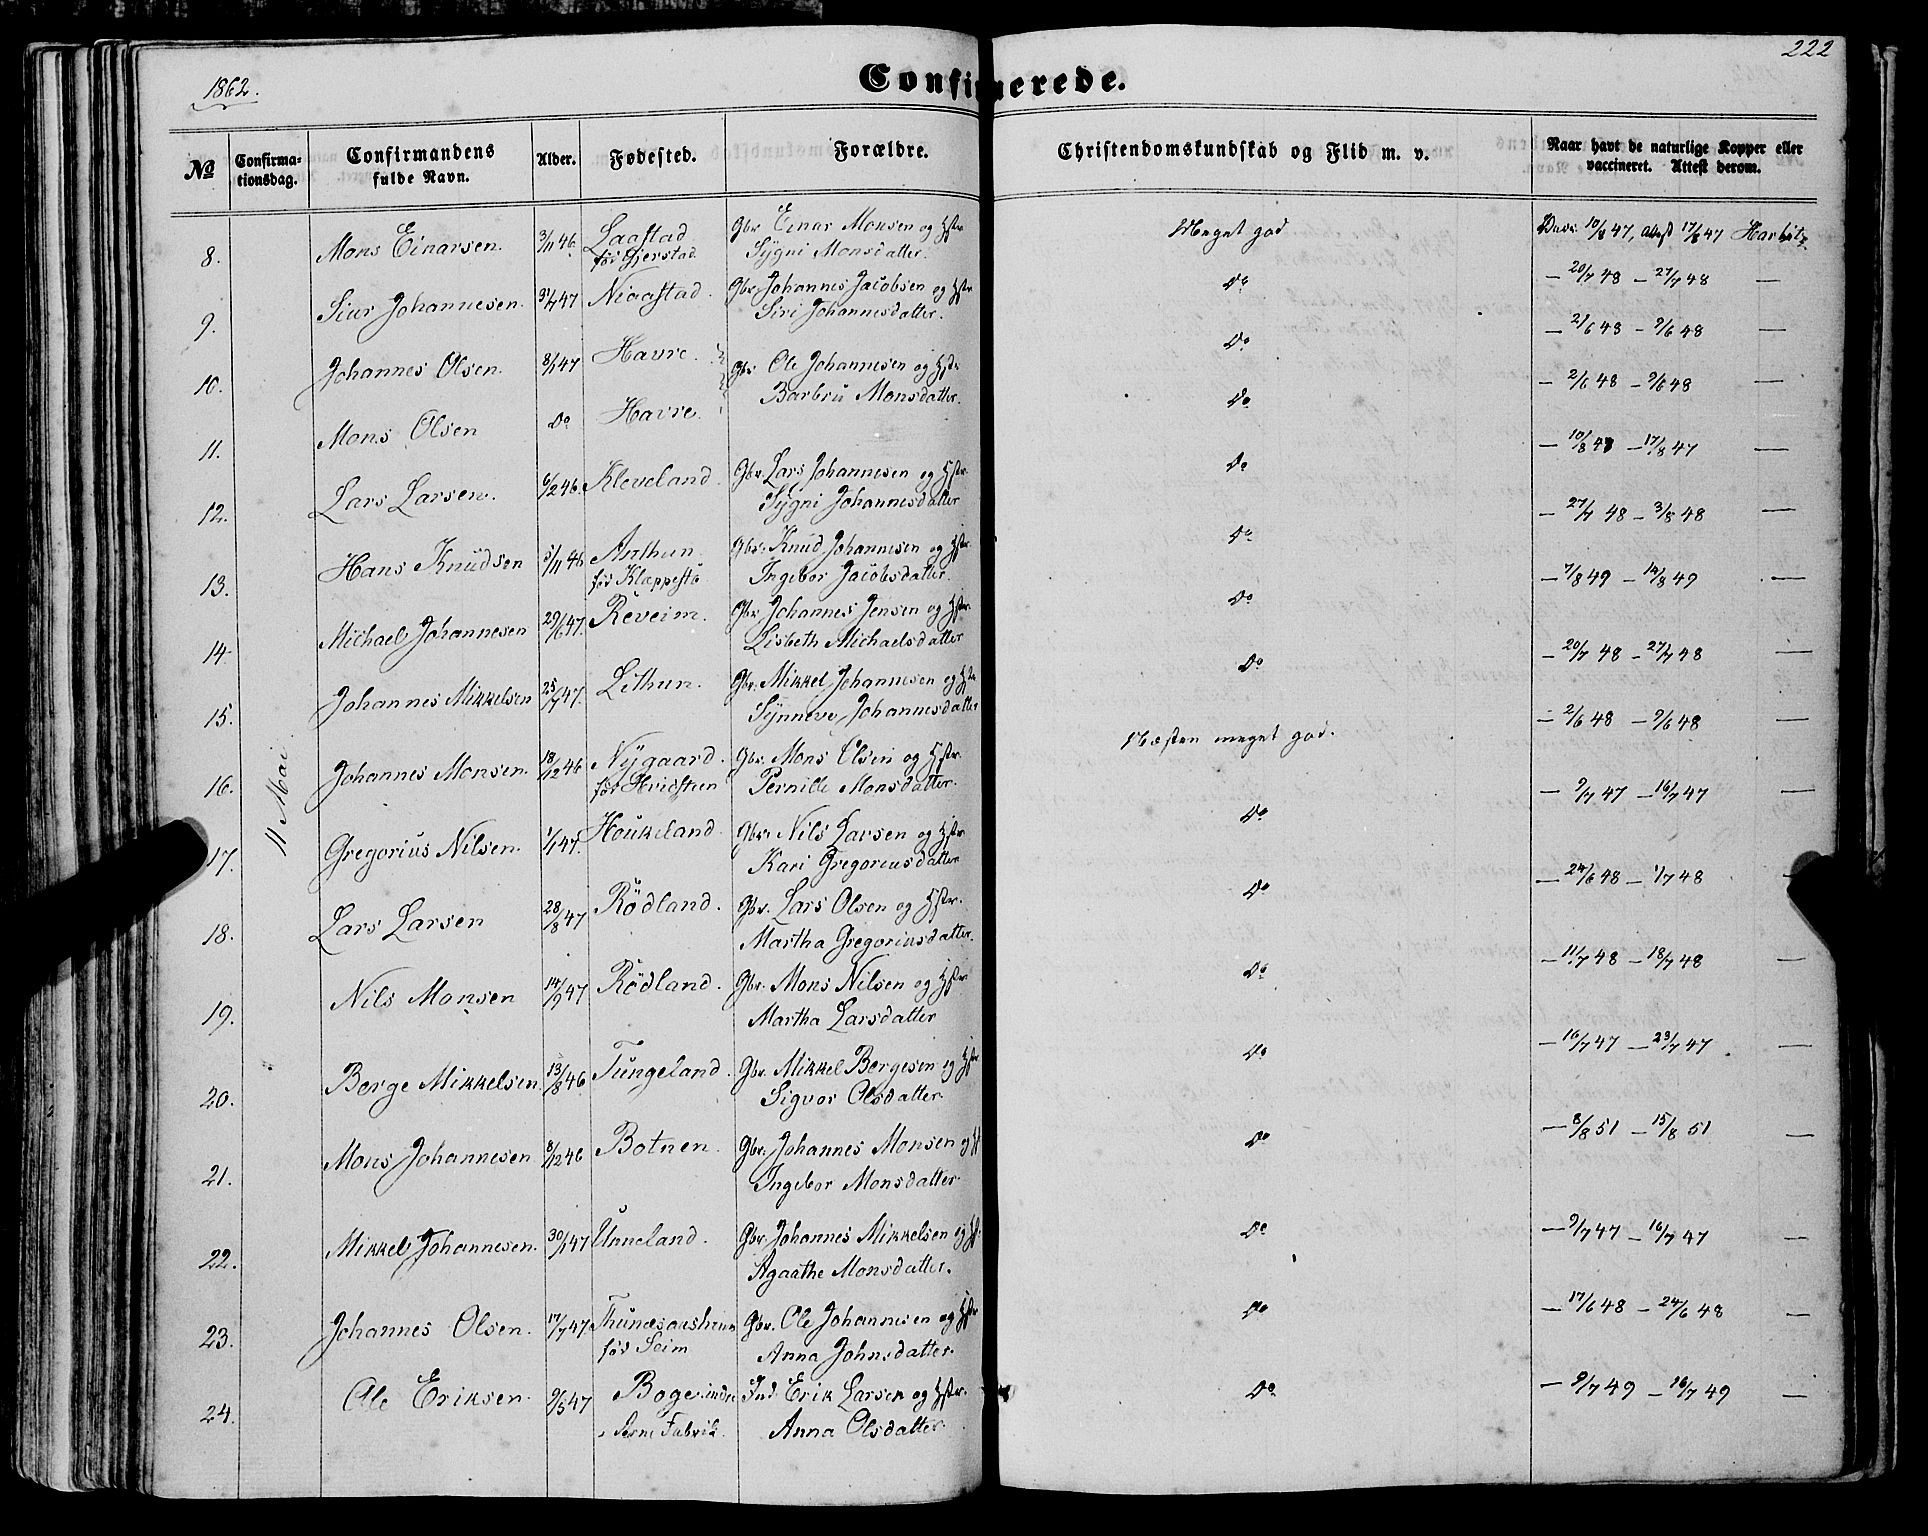 222
1862.
Confirmerede.
No Confirmationsdag. Confirmandens fulde Navn. Alder. Fødested. Forældre. Christendomskundskab og Flid m. v. Naar havt de naturlige Kopper eller vaccineret. Attest derom.
11 Mai
8. Mons Einarsen. 3/11 46. Laastad Gbr. Einar Monsen og Hstr. Meget god Vacc. 10/8 47, attest 17/8 47 Harbitz
før Gjerstad Sÿgni Monsdatter.
9. Siur Johannesen. 31/7 47 Niaastad. Gbr. Johannes Jacobsen og Hstr. Do — 20/7 48 — 27/7 48 —
Siri Johannesdatter.
10. Johannes Olsen. 8/1 47 Havre. Gbr. Ole Johannesen og Hstr. Do — 2/6 48 — 9/6 48 —
Barbru Monsdatter.
11. Mons Olsen Do Havre. Do — 2/6 48 — 9/6 48 —
12. Lars Larsen. 6/2 46. Kleveland. Gbr. Lars Johannesen og Hstr. Do — 10/8 47 — 17/8 47 —
Sÿgni Johannesdatter
13. Hans Knudsen 5/11 46 Anthun. Gbr. Knud Johannesen og Hstr. Do — 27/7 48 — 3/8 48 —
før Klæppestø Ingebor Jacobsdatter.
14. Michael Johannesen 29/6 47. Reveim. Gbr. Johannes Jensen og Hstr. Do — 7/8 49 — 14/8 49 —
Lisbeth Michaelsdatter
15. Johannes Mikkelsen 25/7 47. Lithun. Gbr. Mikkel Johannesen og Hstr Do — 20/7 48 — 27/7 48 —
Sÿnneve Johannesdatter
16. Johannes Monsen. 18/12 46 Nÿgaard. Gbr. Mons Olsen og Hstr. Næsten meget god. — 2/6 48 — 9/6 48 —
før Hvidsteen Pernille Monsdatter.
17. Gregorius Nilsen. 1/1 47. Houkeland. Gbr. Nils Larsen og Hstr. Do — 9/7 47 — 16/7 47 —
Kari Gregoriusdatter
18. Lars Larsen 28/8 47 Rödland. Gbr. Lars Olsen og Hstr. Do — 24/6 48 — 1/7 48 —
Martha Gregoriusdatter.
19. Nils Monsen 14/9 47 Rödland. Gbr. Mons Nilsen og Hstr Do — 11/7 48 — 18/7 48 —
Martha Larsdatter
20. Berge Mikkelsen 13/8 46 Tungeland. Gbr. Mikkel Bergesen og Hstr Do — 16/7 47 — 23/7 47 —
Sigvor Olsdatter.
21. Mons Johannesen 8/12 46 Botnen. Gbr. Johannes Monsen og H Do — 8/8 51 — 15/8 51 —
Ingebor Monsdatter.
22. Mikkel Johannesen. 30/1 47 Unneland. Gbr. Johannes Mikkelsen og H Do — 9/7 47 — 16/7 47 —
Agaathe Monsdatter.
23. Johannes Olsen. 17/7 47 Gbr. Ole Johannesen og Hstr Do — 17/6 48 — 24/6 48 —
før Seim Anna Johnsdatter.
24. Ole Eriksen. 9/5 47 Boge indre Ind. Erik Larsen og Hstr. Do — 9/7 49 — 16/7 49 —
Arne Fabrik. Anna Olsdatter.